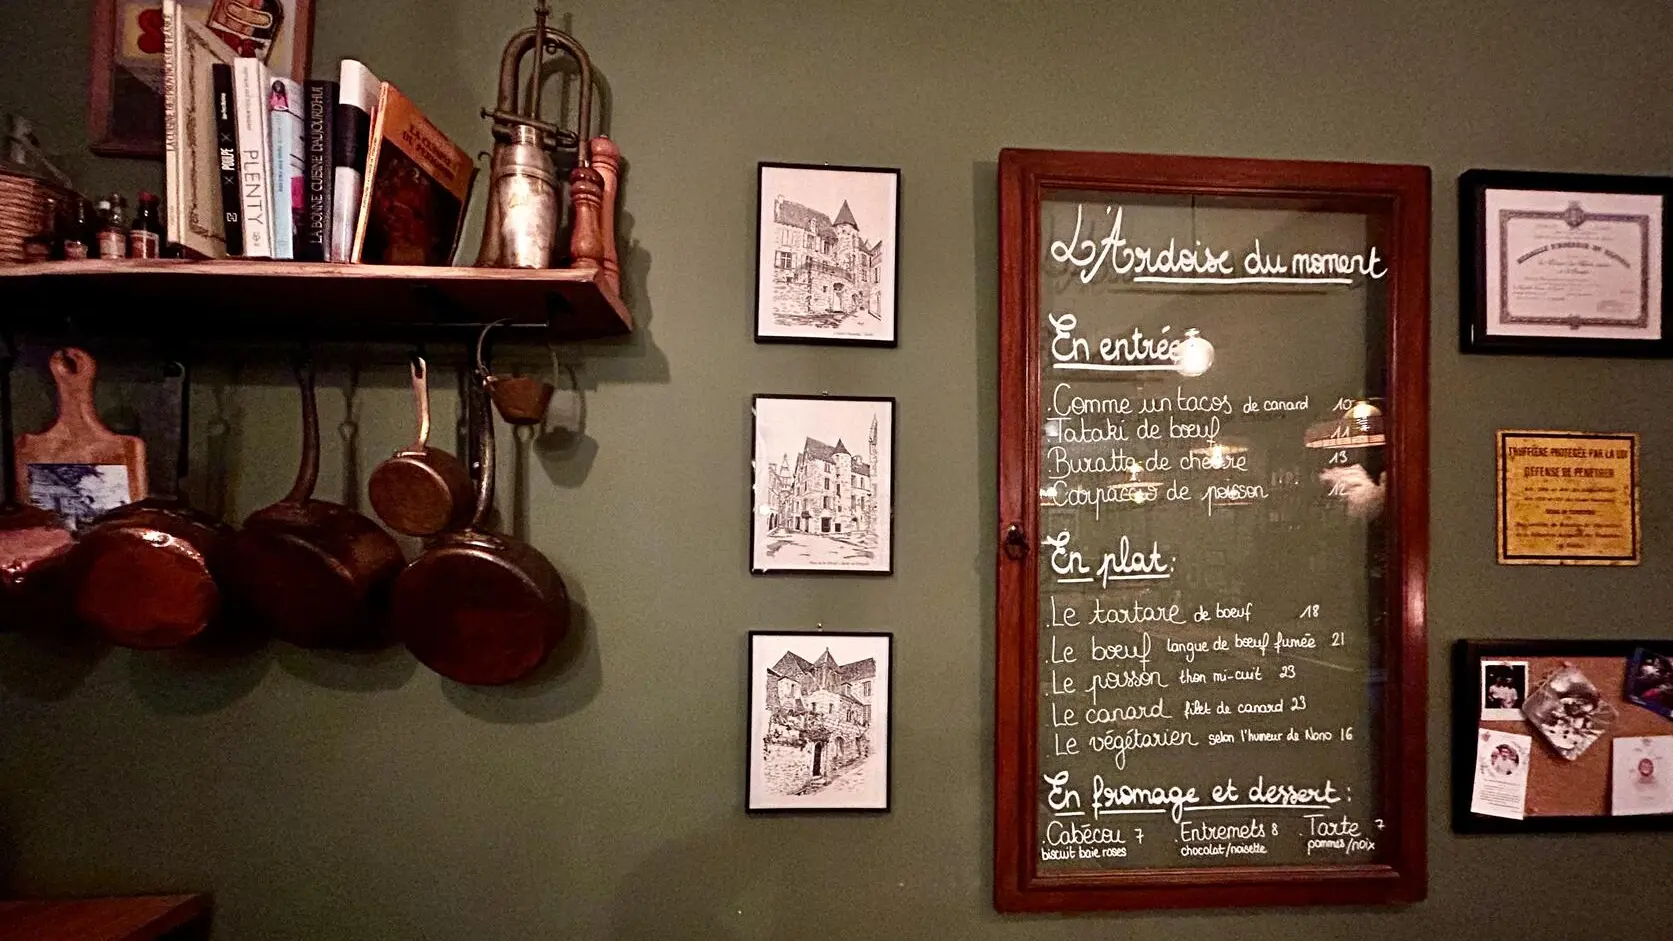 LA CUISINE DES PROVINCES DE FRANCE
POULPE
PLENTY
LA BONNE CUISINE D'AUJOURD'HUI
LA CUISINE DU
L'Ardoise du moment
En entrée
.Comme un tacos de canard 10
.Tataki de bœuf 11
.Buratta de chèvre 13
.Carpaccio de poisson 12
En plat:
.Le tartare de boeuf 18
.Le bœuf langue de bœuf fumée 21
.Le poisson thon mi-cuit 23
.Le canard filet de canard 23
.Le végétarien selon l'humeur de Nono 16
En fromage et dessert:
.Cabécou 7 .Entremets 8 .Tarte 7
biscuit baie roses chocolat/noisette pommes/noix
TRUFFIÈRE PROTÉGÉE PAR LA LOI
DÉFENSE DE PÉNÉTRER